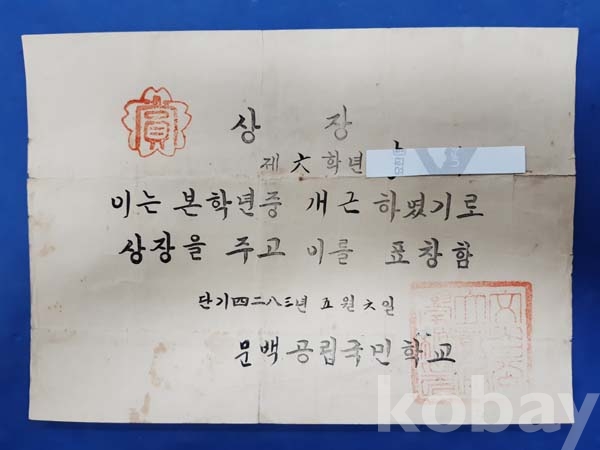 賞
상 장
제 六 학년
이는 본학년중 개근 하였기로
상장을 주고 이를 표창함
단기四二八三년 五 월 六 일
문백공립국민학교
kobay